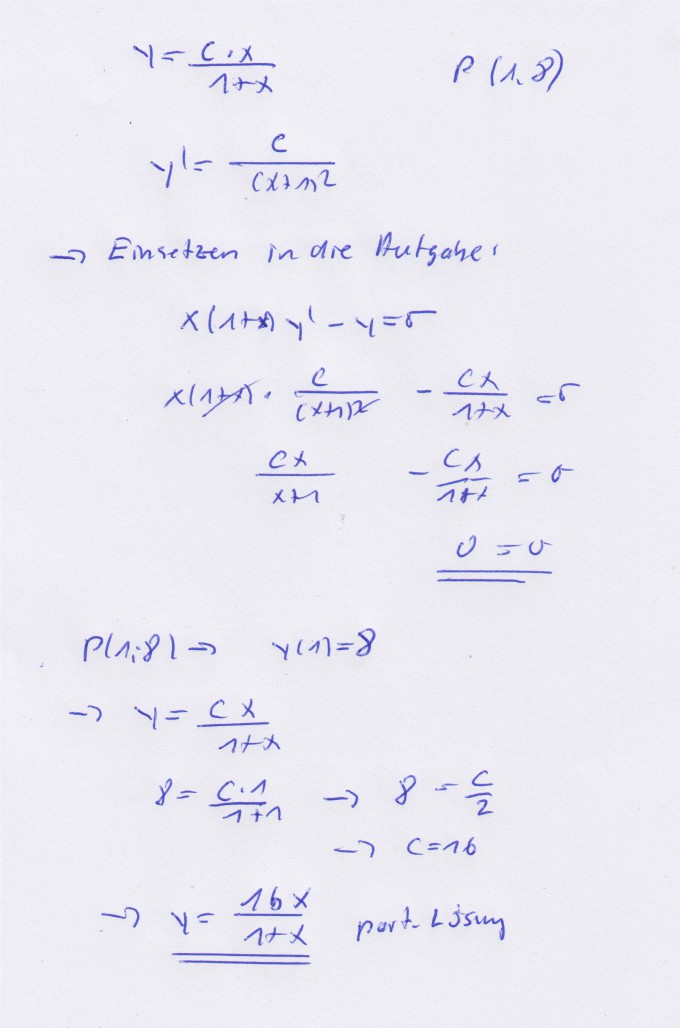 y = C·x / 1+x P (1,8)
y' = C / (x+1)²
→ Einsetzen in die Aufgabe:
x(1+x) y' - y = 0
x(1+x) · C / (x+1)² - Cx / 1+x = 0
Cx / x+1 - Cx / 1+x = 0
0 = 0
P(1;8) → y(1)=8
→ y = Cx / 1+x
8 = C·1 / 1+1 → 8 = C / 2
→ C=16
→ y = 16x / 1+x part. Lösung